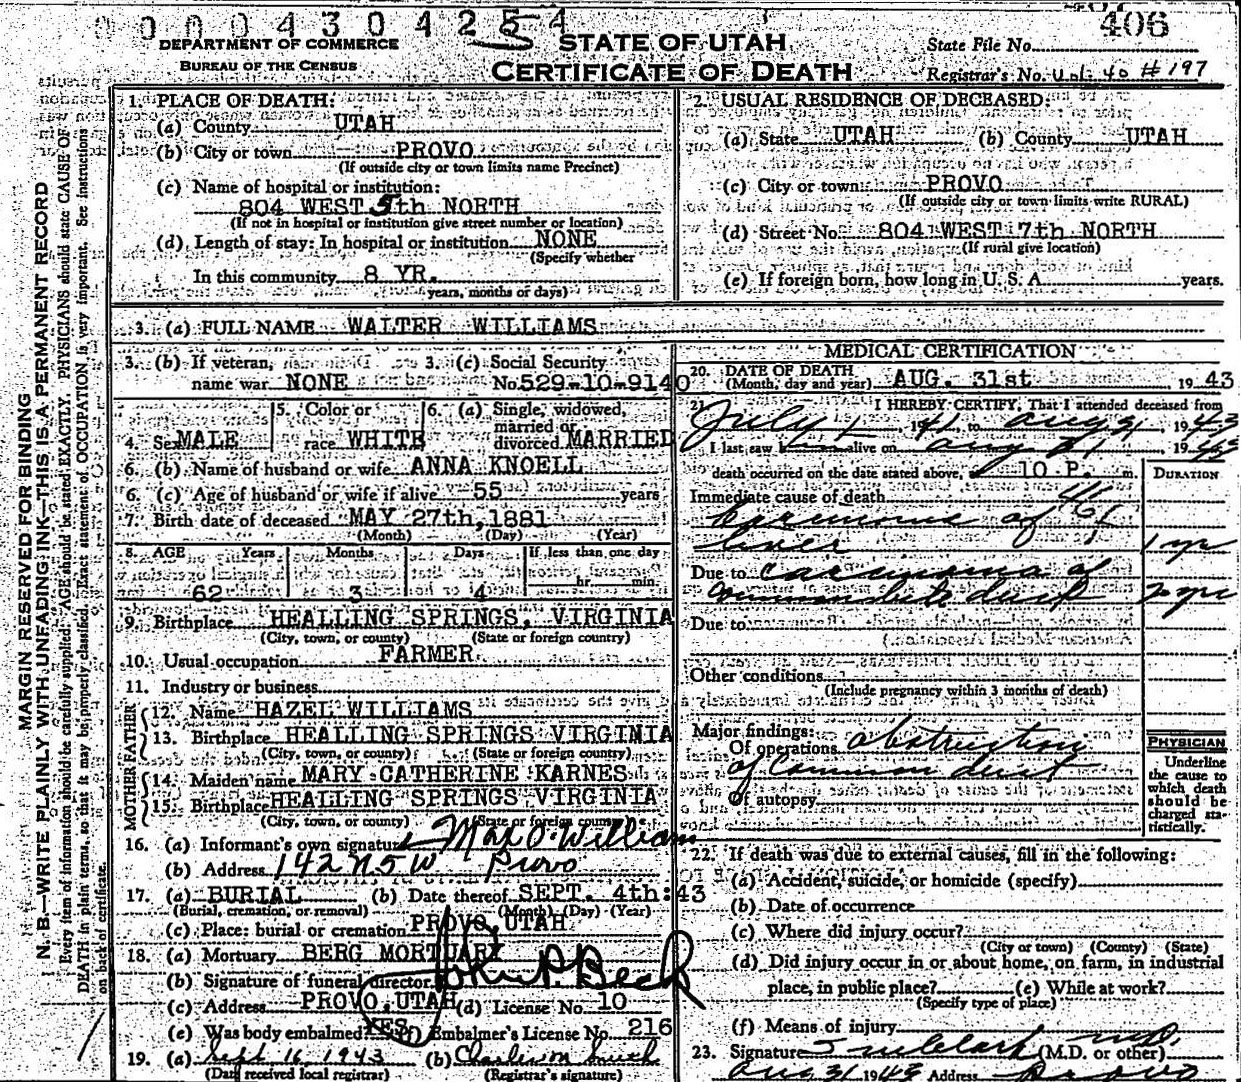 0 0 0 0 4 3 0 4 2 5 4
406
DEPARTMENT OF COMMERCE
BUREAU OF THE CENSUS
STATE OF UTAH
CERTIFICATE OF DEATH
State File No.
Registrar's No. Vol. 40 #197
MARGIN RESERVED FOR BINDING
N. B.—WRITE PLAINLY WITH UNFADING INK—THIS IS A PERMANENT RECORD
Every item of information should be carefully supplied. AGE should be stated EXACTLY. PHYSICIANS should state CAUSE OF
DEATH in plain terms, so that it may be properly classified. Exact statement of OCCUPATION is very important. See instructions
on back of certificate.
1. PLACE OF DEATH:
(a) County UTAH
(b) City or town PROVO
(If outside city or town limits name Precinct)
(c) Name of hospital or institution:
804 WEST 5th NORTH
(If not in hospital or institution give street number or location)
(d) Length of stay: In hospital or institution NONE
(Specify whether
In this community 8 YR.
years, months or days)
2. USUAL RESIDENCE OF DECEASED:
(a) State UTAH (b) County UTAH
(c) City or town PROVO
(If outside city or town limits write RURAL)
(d) Street No. 804 WEST 7th NORTH
(If rural give location)
(e) If foreign born, how long in U. S. A. years.
3. (a) FULL NAME WALTER WILLIAMS
3. (b) If veteran, 3. (c) Social Security
name war NONE No. 529-10-9140
4. Sex MALE 5. Color or race WHITE 6. (a) Single, widowed, married or divorced MARRIED
6. (b) Name of husband or wife ANNA KNOELL
6. (c) Age of husband or wife if alive 55 years
7. Birth date of deceased MAY 27th, 1881
(Month) (Day) (Year)
8. AGE Years Months Days If less than one day
62 3 4 hr. min.
9. Birthplace HEALLING SPRINGS, VIRGINIA
(City, town, or county) (State or foreign country)
10. Usual occupation FARMER
11. Industry or business
FATHER
12. Name HAZEL WILLIAMS
13. Birthplace HEALLING SPRINGS VIRGINIA
(City, town, or county) (State or foreign country)
MOTHER
14. Maiden name MARY CATHERINE KARNES
15. Birthplace HEALLING SPRINGS VIRGINIA
(City, town, or county) (State or foreign country)
16. (a) Informant's own signature Max O. William
(b) Address 142 N 5 W Provo
17. (a) BURIAL (b) Date thereof SEPT. 4th:43
(Burial, cremation, or removal) (Month) (Day) (Year)
(c) Place: burial or cremation PROVO, UTAH
18. (a) Mortuary BERG MORTUARY
(b) Signature of funeral director John P. Beck
(c) Address PROVO, UTAH (d) License No. 10
(e) Was body embalmed? YES (f) Embalmer's License No. 216
19. (a) Sept 16, 1943 (b)
(Date received local registrar) (Registrar's signature)
MEDICAL CERTIFICATION
20. DATE OF DEATH
(Month, day and year) AUG. 31st, 1943
21. I HEREBY CERTIFY, That I attended deceased from
July 1, 1941 to Aug 31, 1943
I last saw h alive on Aug 31, 1943
death occurred on the date stated above, at 10 P. m.
DURATION
Immediate cause of death 46 f
Carcinoma of
liver 1 yr
Due to Carcinoma of
Common bile duct 2 yr
Due to
Other conditions
(Include pregnancy within 3 months of death)
Major findings:
Of operations obstruction
of Common duct
Of autopsy
PHYSICIAN
Underline
the cause to
which death
should be
charged sta-
tistically.
22. If death was due to external causes, fill in the following:
(a) Accident, suicide, or homicide (specify)
(b) Date of occurrence
(c) Where did injury occur?
(City or town) (County) (State)
(d) Did injury occur in or about home, on farm, in industrial
place, in public place? (e) While at work?
(Specify type of place)
(f) Means of injury
23. Signature Clark M.D. (M.D. or other)
Aug 31, 1943 Address Provo